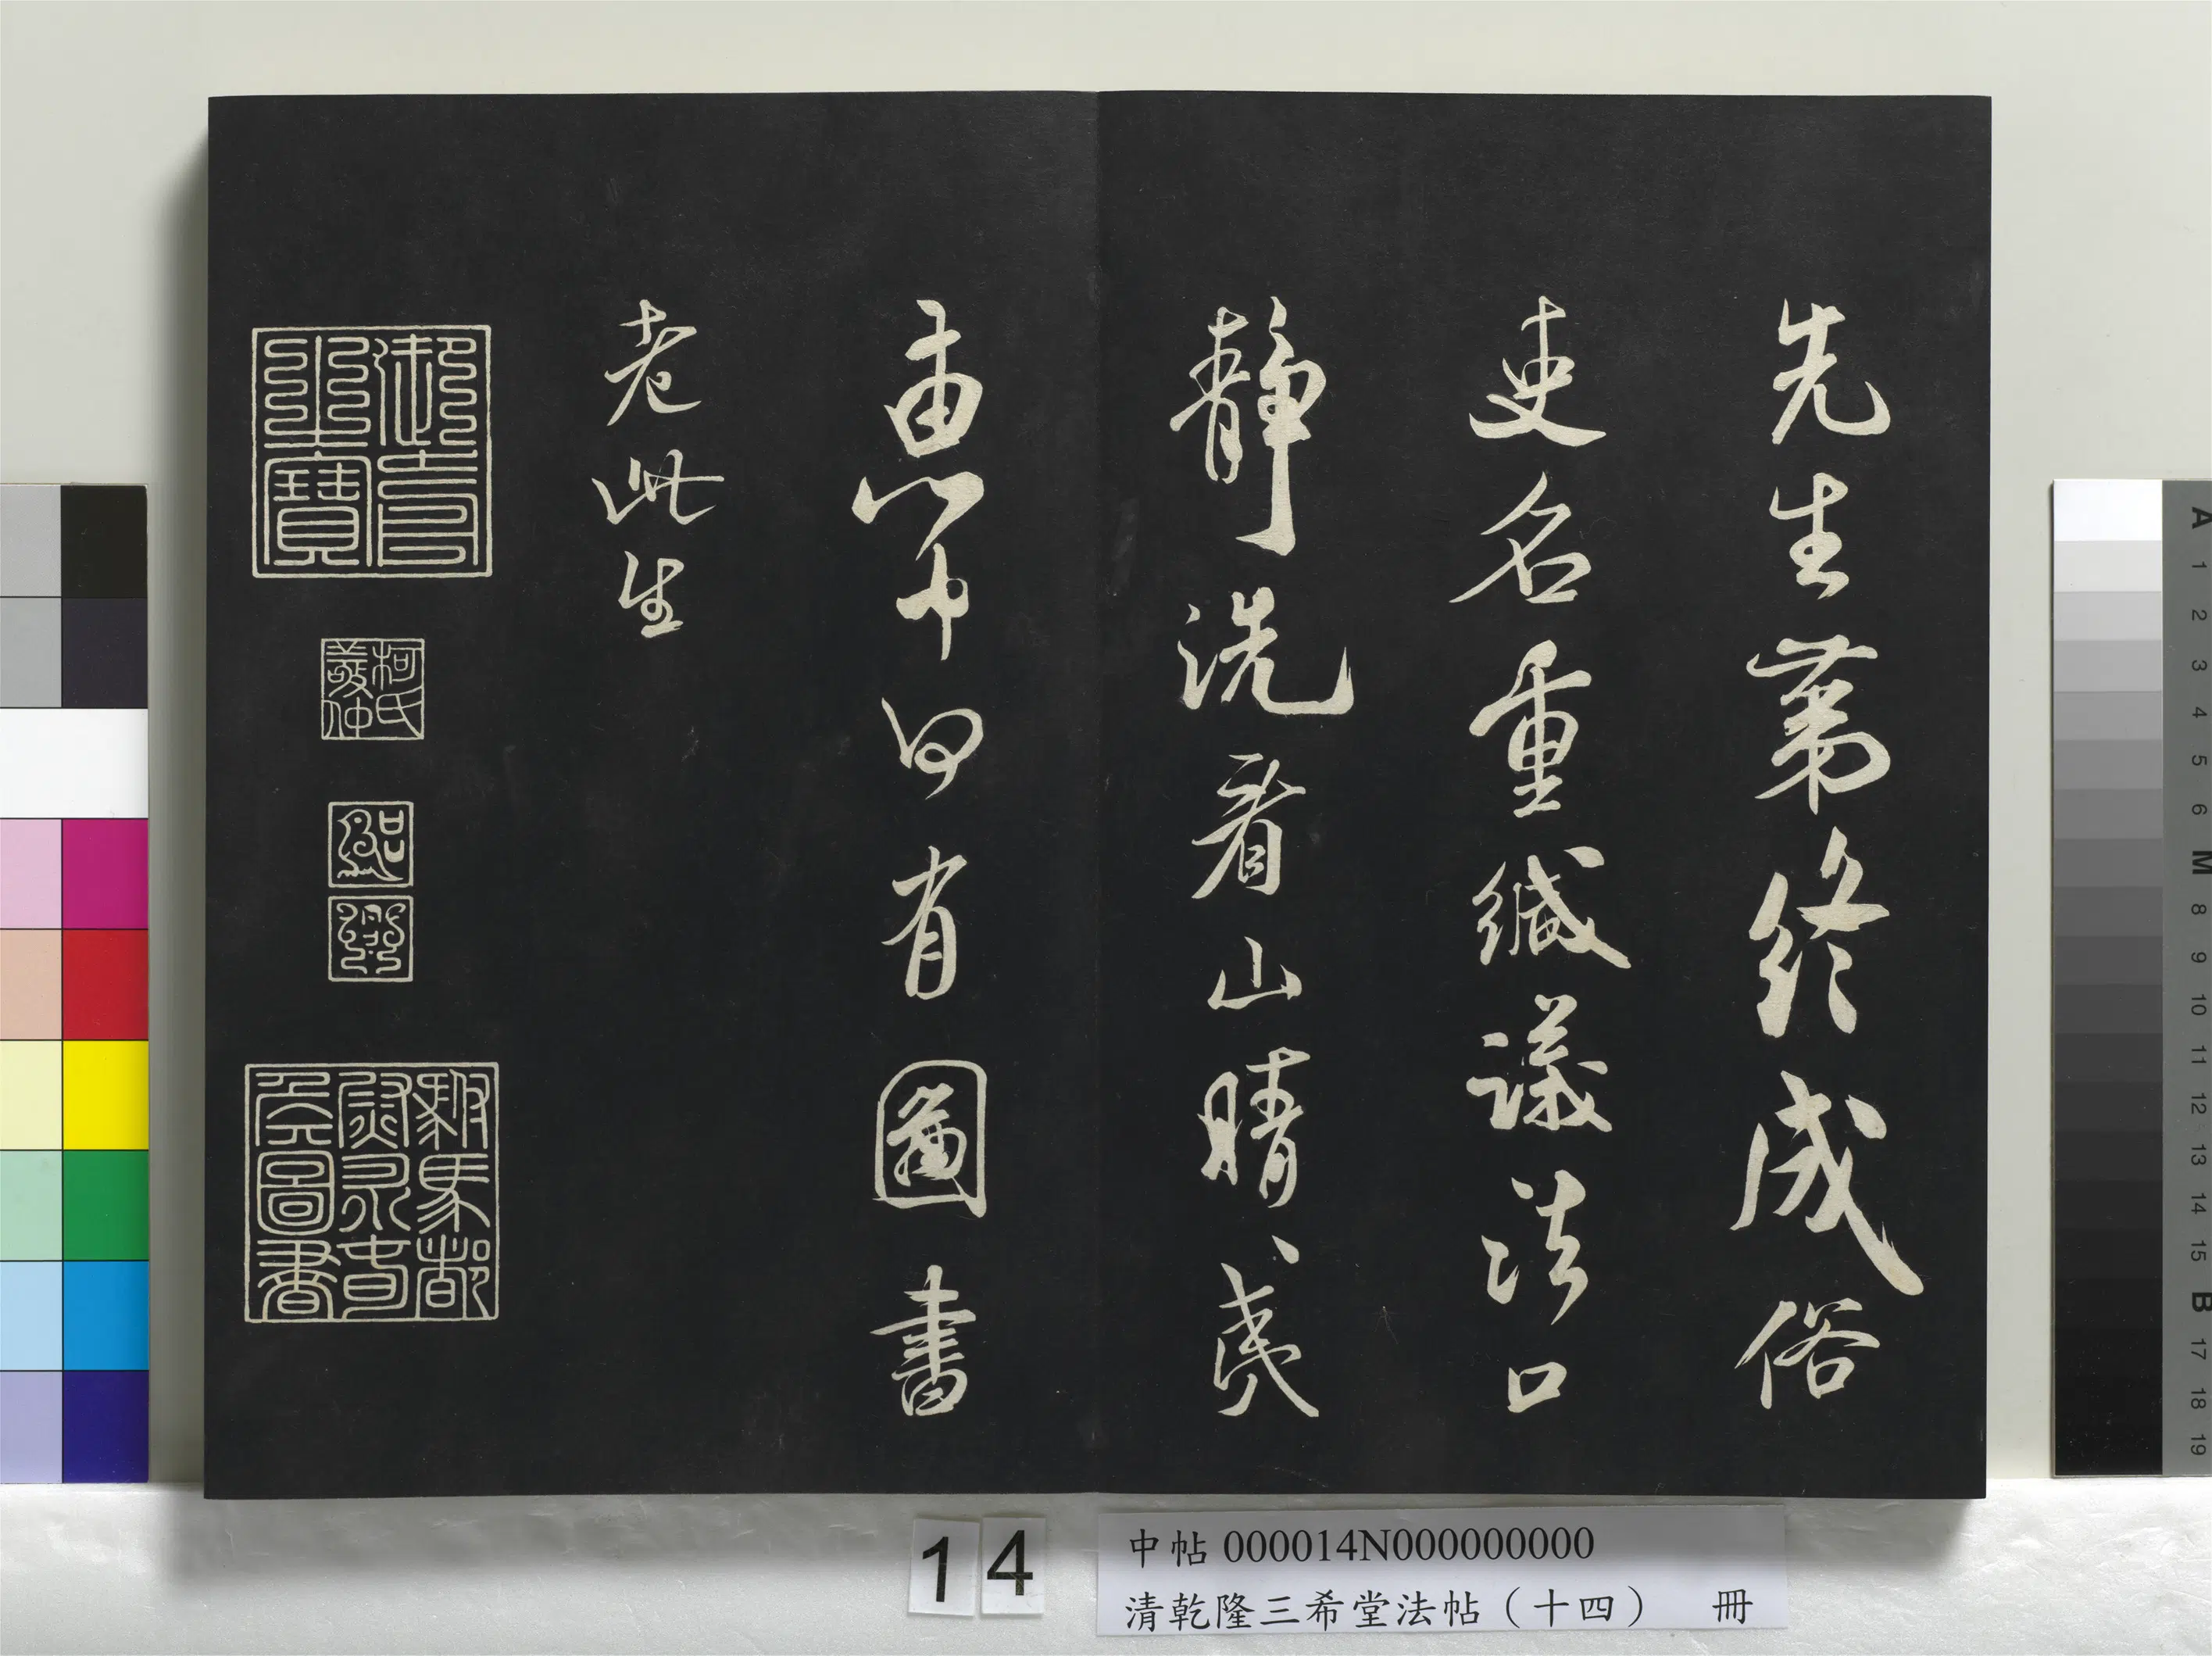 先生第終成俗
吏名重緘議法口
靜洗看山睛夷
惠中何有圖書
老此生
柯氏敬仲
紹興
14
中帖 000014N000000000
清乾隆三希堂法帖（十四） 冊
A 1 2 3 4 5 6 M 8 9 10 11 12 13 14 15 B 17 18 19